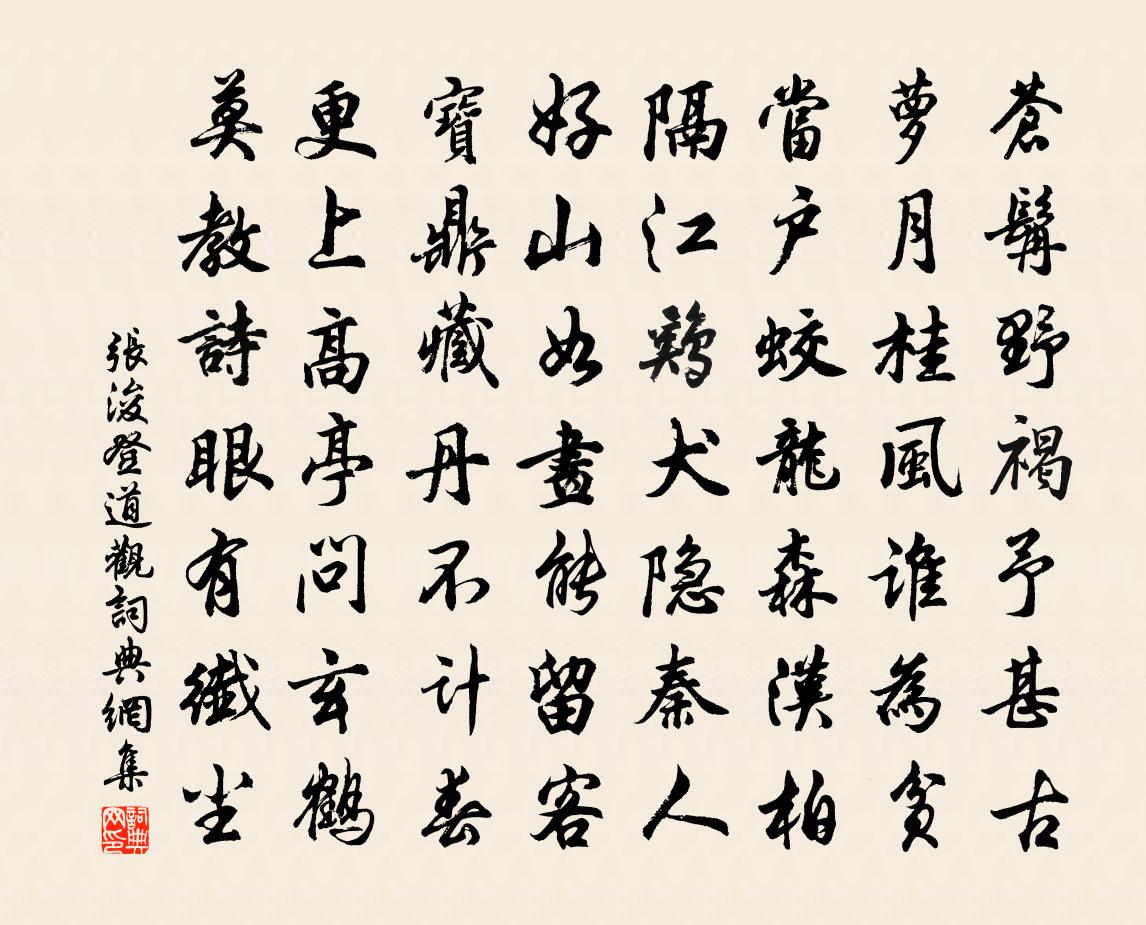 蒼髯野褐予甚古
萝月桂風誰為貧
當户蛟龍森漢柏
隔江鷄犬隐秦人
好山如畫能留客
寶鼎藏丹不计春
更上高亭問玄鶴
莫教詩眼有纖尘
張浚登道觀詞典網集
詞典网印